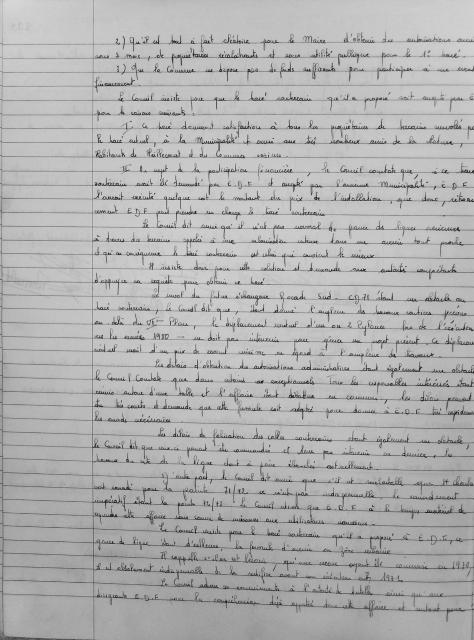 2) Qu'il est tout à fait aléatoire pour le Maire d'obtenir des autorisations
sous 3 mois, de propriétaires récalcitrants et sans utilité publique pour le 1er tracé.
3) Que la Commune ne dispose pas de fonds suffisants pour participer à un
financement.
Le Conseil insiste pour que le tracé souterrain qu'il a proposé soit
pour les raisons suivantes :
I° Ce tracé donnerait satisfaction à tous les propriétaires de terrains
le tracé actuel, à la Municipalité et aussi aux très nombreux amis de la Nature,
habitants de et des Communes voisines.
II° Au sujet de la participation financière, le Conseil constate que, si ce
souterrain avait été demandé par E.D.F. et accepté par l'ancienne Municipalité, E.D.F.
l'aurait exécuté quelque soit le montant du prix de l'installation, que donc,
E.D.F. peut prendre en charge le tracé souterrain.
Le Conseil dit aussi qu'il n'est pas normal de passer des lignes aériennes
à travers des terrains appelés à une urbaine dans un avenir tout proche
et qu'en conséquence le tracé souterrain est celui qui convient le mieux.
Il insiste donc pour cette solution et demande aux autorités compétentes
d'appuyer sa requête pour obtenir ce tracé.
Le projet du futur échangeur Rocade Sud - CD 71 étant un obstacle au
tracé souterrain, le Conseil dit que, étant donné l'ampleur des travaux routiers prévus
au delà du VI° Plan, le déplacement éventuel d'un ou 2 Pylônes lors de l'exécution
vers les années 1980 - ne doit pas intervenir pour gêner un projet présent. Ce déplacement
serait d'un prix de revient minime eu égard à l'ampleur des travaux.
Les délais d'obtention des autorisations administratives étant également un obstacle,
le Conseil constate que dans certains cas exceptionnels tous les responsables intéressés étant
réunis autour d'une table et l'affaire étant débattue en commun, les délais peuvent
être très courts et demande que cette formule soit adoptée pour donner à E.D.F. très rapidement
les accords nécessaires.
Les délais de fabrication des câbles souterrains étant également un obstacle,
le Conseil dit que ceux-ci peuvent être commandés et leur pose intervenir en dernier, les
travaux du reste de la ligne étant à peine ébauchés actuellement.
D'autre part, le Conseil dit aussi que s'il est souhaitable que St Charles
soit raccordé pour la pointe 71/72 ce n'est pas indispensable, le raccordement
impératif étant la pointe 72/73 le Conseil déduit que E.D.F. a le temps matériel de
cette affaire sans causer de nuisances aux utilisateurs nouveaux.
Le Conseil insiste pour le tracé souterrain qu'il a proposé à E.D.F., ce
genre de ligne étant d'ailleurs, la formule d'avenir en zone urbaine.
Il rappelle si besoin, qu'une erreur ayant été commise en 1970,
il est absolument indispensable de la rectifier avant son exécution courant 1971.
Le Conseil adresse ses remerciements à l'autorité de tutelle ainsi qu'aux
dirigeants E.D.F. pour la compréhension déjà apportée dans cette affaire et surtout pour